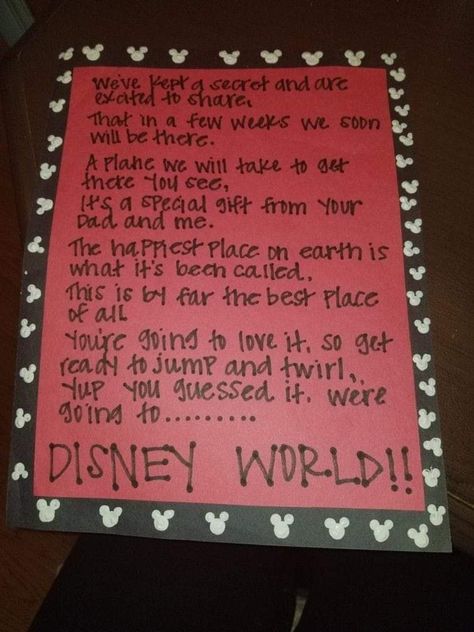 We've kept a secret and are
excited to share,
That in a few weeks we soon
will be there.
A plane we will take to get
there you see,
It's a special gift from your
Dad and me.
The happiest place on earth is
what it's been called,
This is by far the best place
of all
You're going to love it, so get
ready to jump and twirl,
Yup you guessed it, we're
going to.........
DISNEY WORLD!!